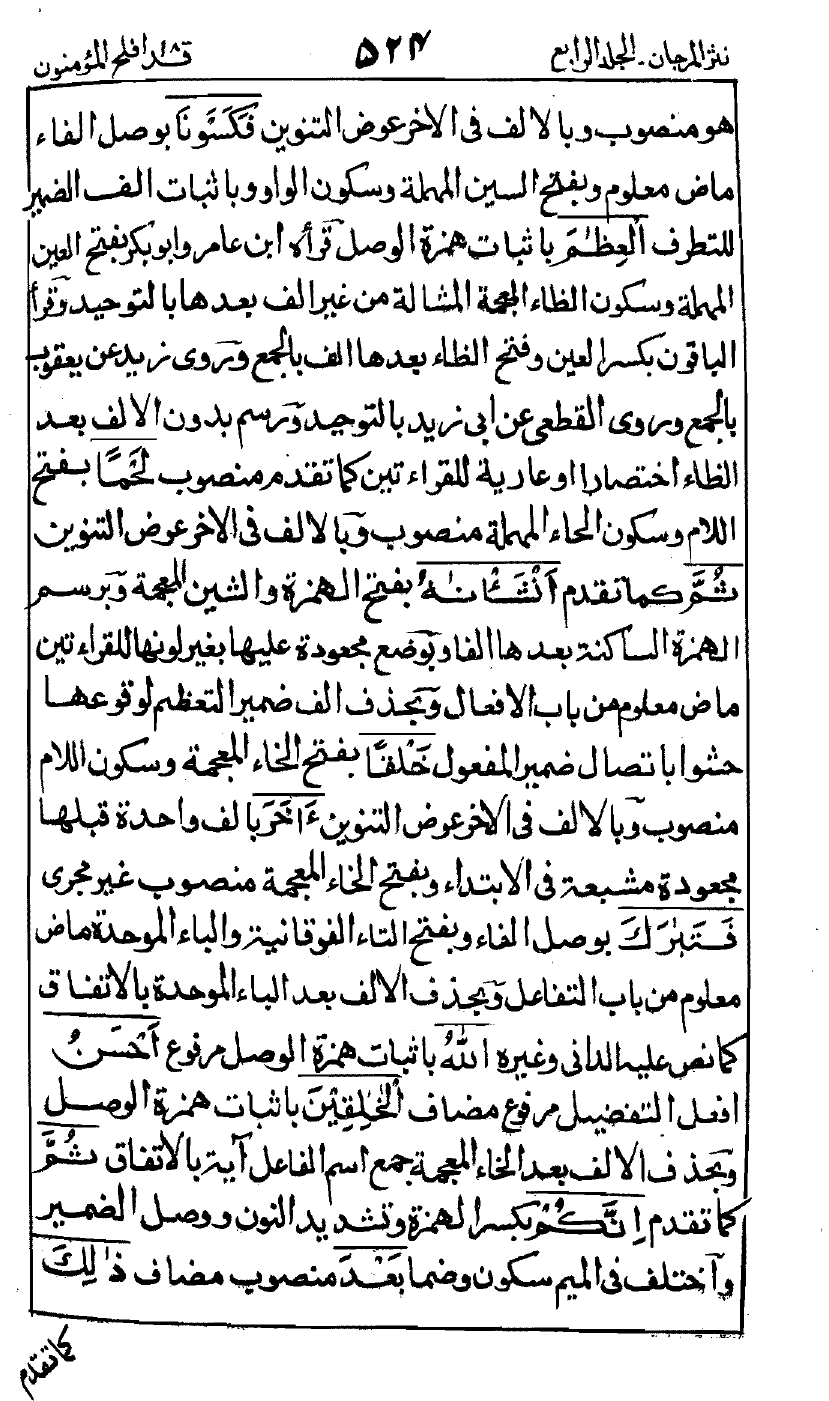 نثر المرجان - الجلد الرابع ٥٢٤ قد افلح ١٨ المؤمنون
هو منصوب وبالالف فى الاخر عوض التنوين فَكَسَوْنَا بوصل الفاء
ماض معلوم وبفتح السين المهملة وسكون الواو وباثبات الف الضمير
للتطرف الْعِظٰمَ باثبات همزة الوصل قرأه ابن عامر وابوبكر بفتح العين
المهملة وسكون الظاء المعجمة المشالة من غير الف بعدها بالتوحيد وقرأ
الباقون بكسر العين وفتح الظاء بعدها الف بالجمع وروى زيد عن يعقوب
بالجمع وروى القطعى عن ابى زيد بالتوحيد ورسم بدون الالف بعد
الظاء اختصارا اوعارية للقراءتين كما تقدم منصوب لَحْمًا بفتح
اللام وسكون الحاء المهملة منصوب وبالالف فى الاخر عوض التنوين
ثُمَّ كما تقدم اَنْشَأْنٰهُ بفتح الهمزة والشين المعجمة وبرسم
الهمزة الساكنة بعدها الفا وبوضع مجعودة عليها بغير لونها للقراءتين
ماض معلوم من باب الافعال وبحذف الف ضمير التعظيم لوقوعها
حشوا باتصال ضمير المفعول خَلْقًا بفتح الخاء المعجمة وسكون اللام
منصوب وبالالف فى الاخر عوض التنوين ءَاخَرَ بالف واحدة قبلها
مجعودة مشبعة فى الابتداء وبفتح الخاء المعجمة منصوب غير مجرى
فَتَبٰرَكَ بوصل الفاء وبفتح التاء الفوقانية والباء الموحدة ماض
معلوم من باب التفاعل وبحذف الالف بعد الباء الموحدة بالاتفاق
كما نص عليه الدانى وغيره اللهُ باثبات همزة الوصل مرفوع اَحْسَنُ
افعل التفضيل مرفوع مضاف الْخٰلِقِيْنَ باثبات همزة الوصل
وبحذف الالف بعد الخاء المعجمة جمع اسم الفاعل آية بالاتفاق ثُمَّ
كما تقدم اِنَّكُمْ بكسر الهمزة وتشديد النون ووصل الضمير
واختلف فى الميم سكون وضما بَعْدَ منصوب مضاف ذٰلِكَ
كما تقدم